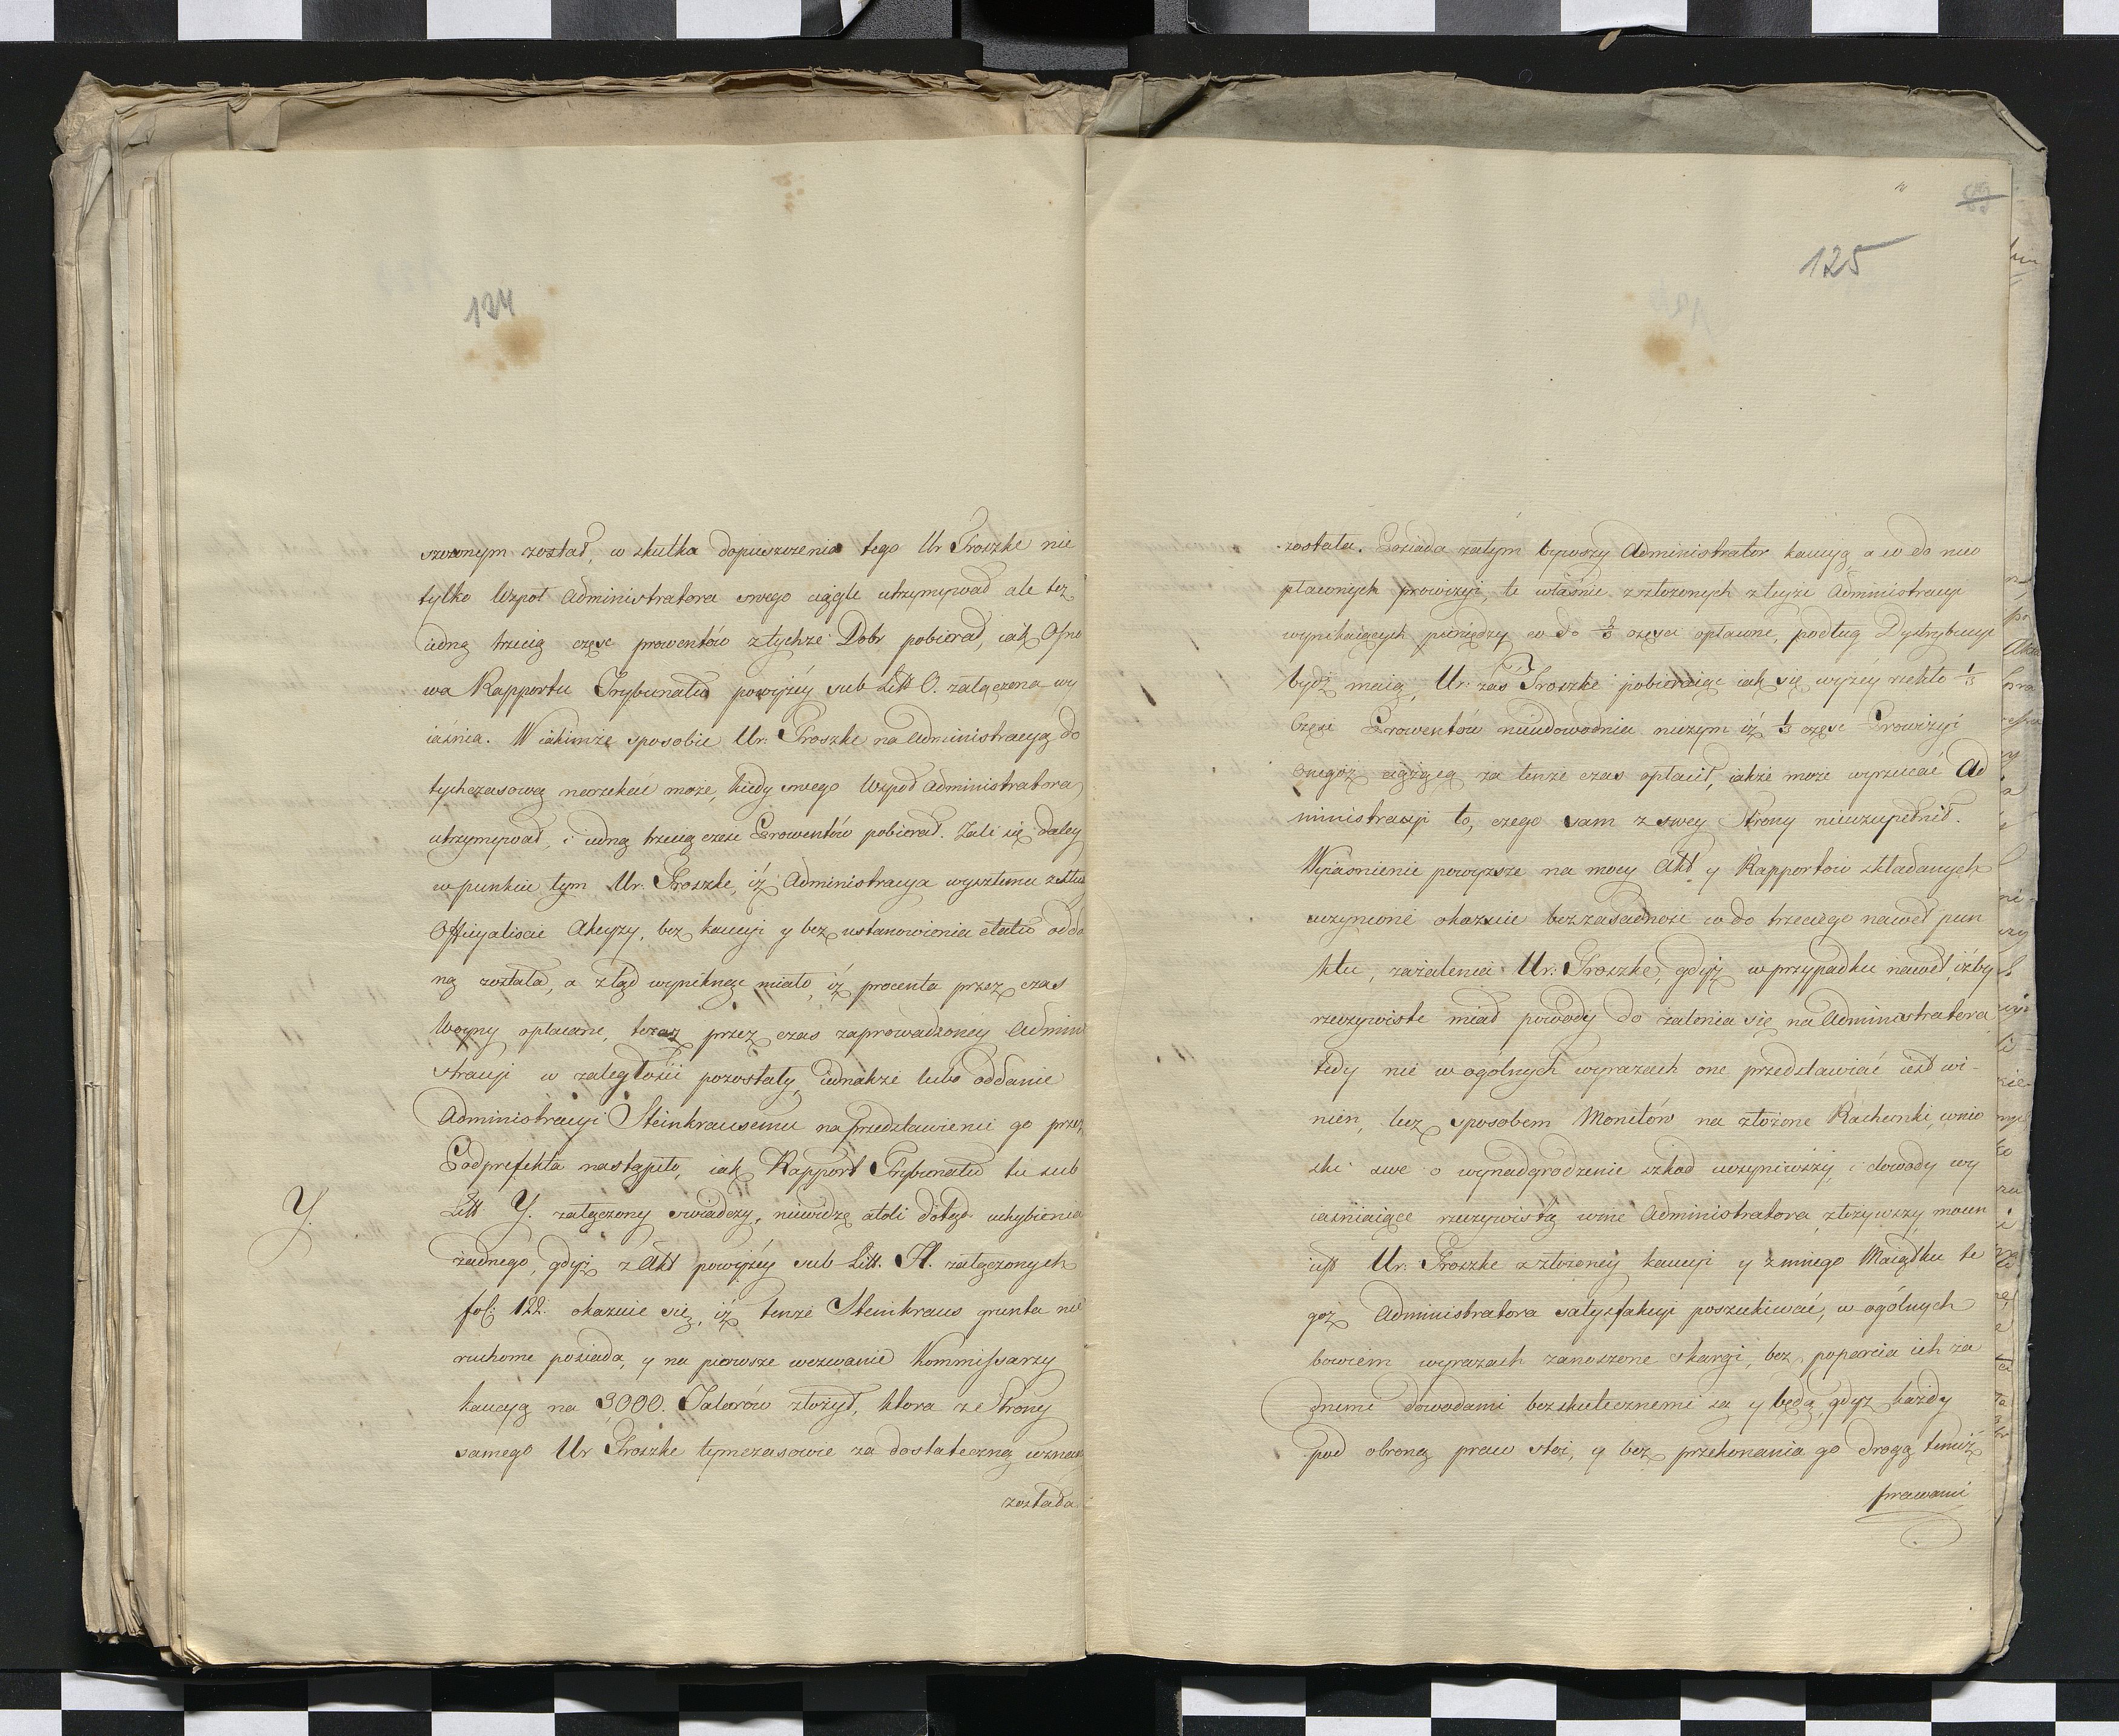 124
szczonym został, w skutku dopuszczenia tego Ur Troszke nie
tylko Wspoł Administratora swego ciągle utrzymywał ale też
iedną trzecią częsc prowentów z tychże Dobr pobierał, iak Osno
wa Rapportu Trybunału powyżéy sub Litt O. załączona wy
iaśnia. W iakimże sposobie Ur: Troszke na Administracyą do
tychczasową narzekać może, kiedy swego Wspoł Administratora
utrzymywał, i iedną trzecią częsc Prowentów pobierał. Żali się daley
w punkcie tym Ur. Troszke, iż Administracya
Officyaliscie Akcyzy, bez kaucyi y bez ustanowienia etatu odda
ną została, a ztąd wyniknąc miało, iż procenta przez czas
Woyny opłacane, teraz przez czas zaprowadzonéy Admini
stracyi w zaległości pozostały, iednakże lubo oddanie
Administracyi Steinkrausemu na przedstawienie go przez
Podprefekta nastąpiło, iak Rapport Trybunału tu sub
Y.
Litt Y. załączony swiadczy, niewidzę atoli dotąd uchybienia
żadnego, gdyż z Akt powyżéy sub Litt. H. załączonych
fol: 122. okazuie się, iż tenże Steinkraus grunta nie
ruchome posiada, y na pierwsze wezwanie Kommissarzy
kaucyą na 3,000. Talarów złożył, ktora ze Strony
samego Ur Troszke tymczasowie za dostateczną uznan
została.
125
została. Posiada zatym bywszy Administrator kaucyą a co do nieo
płaconych prowizyi, te właśnie z złożonych z teyże Administracyi
wynikaiących pieniędzy co do 2/3 częsci opłacone, podług Dystrybucyi
bydź maią, Ur: zaś Troszke pobieraiąc iak się wyżéy rzekło 1/3
Częsc Prowentów nieudowodnia niczym iż 1/3 częsc Prowizyi
onegoż ciążącą za tenże czas opłacił, iakże może wyrzucać Ad
ministracyi to, czego sam z swey Strony nieuzupełnił.
Wyiasnienie powyższe na mocy Akt y Rapportow składanych
uczynione okazuie bezzasadność co do trzeciego nawet pun
ktu, zażalenia Ur: Troszke, gdyż w przypadku nawet, iżby
rzeczywiste miał powody do żalenia się na Administratora
tedy nie w ogólnych wyrazach one przedstawiać iest wi-
nien, lecz sposobem Monitów na złożone Rachunki, wnio
ski swe o wynadgrodzenie szkod uczyniwszy, i dowody wy
iaśniaiące rzeczywistą winę Administratora złożywszy mocen
iest Ur. Troszke z złożonéy kaucyi y z innego Maiątku te
goż Administratora satysfakcyi poszukiwać, w ogólnych
bowiem wyrazach zanoszone skargi, bez poparcia ich ża
dnemi dowodami bezskutecznemi są y będą, gdyż każdy
pod obroną praw stoi, y bez przekonania go drogą temiż
prawami